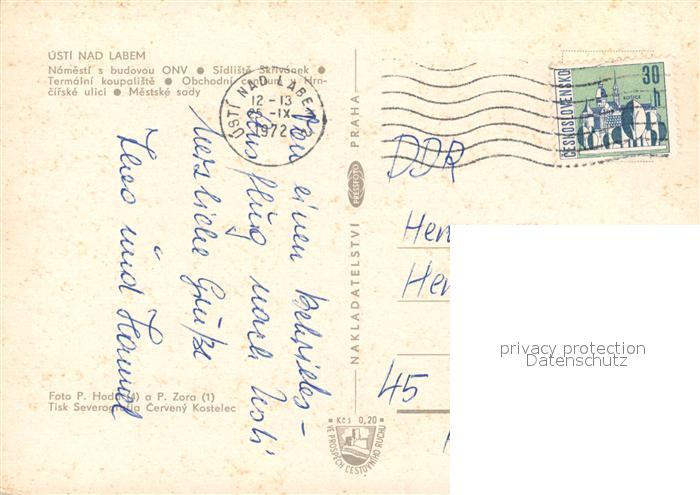 ÚSTÍ NAD LABEM
Náměstí s budovou ONV ● Sídliště Skřivánek ●
Termální koupaliště ● Obchodní centrum v Hrn-
čířské ulici ● Městské sady
ÚSTÍ NAD LABEM 2
12-13
25.-IX.
1972
ČESKOSLOVENSKO
30 h
KOŠICE
Von einen Betriebs-
ausflug nach Usti
herzliche Grüße
und
NAKLADATELSTVÍ PRESSFOTO PRAHA
DDR
Her
He
45
privacy protection
Datenschutz
Foto P. (4) a P. Zora (1)
Tisk Severografia Červený Kostelec
Kčs 0,20
VE PROSPĚCH CESTOVNÍHO RUCHU